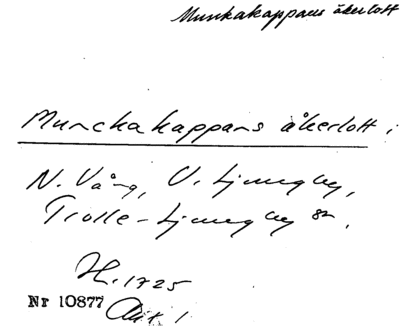 Munkakappans åkerlott
Munckakappans åkerlott i
N. Vång, V. Ljungby,
Trolle-Ljungby sn.
H. 1725
Nr 10877 Akt 1